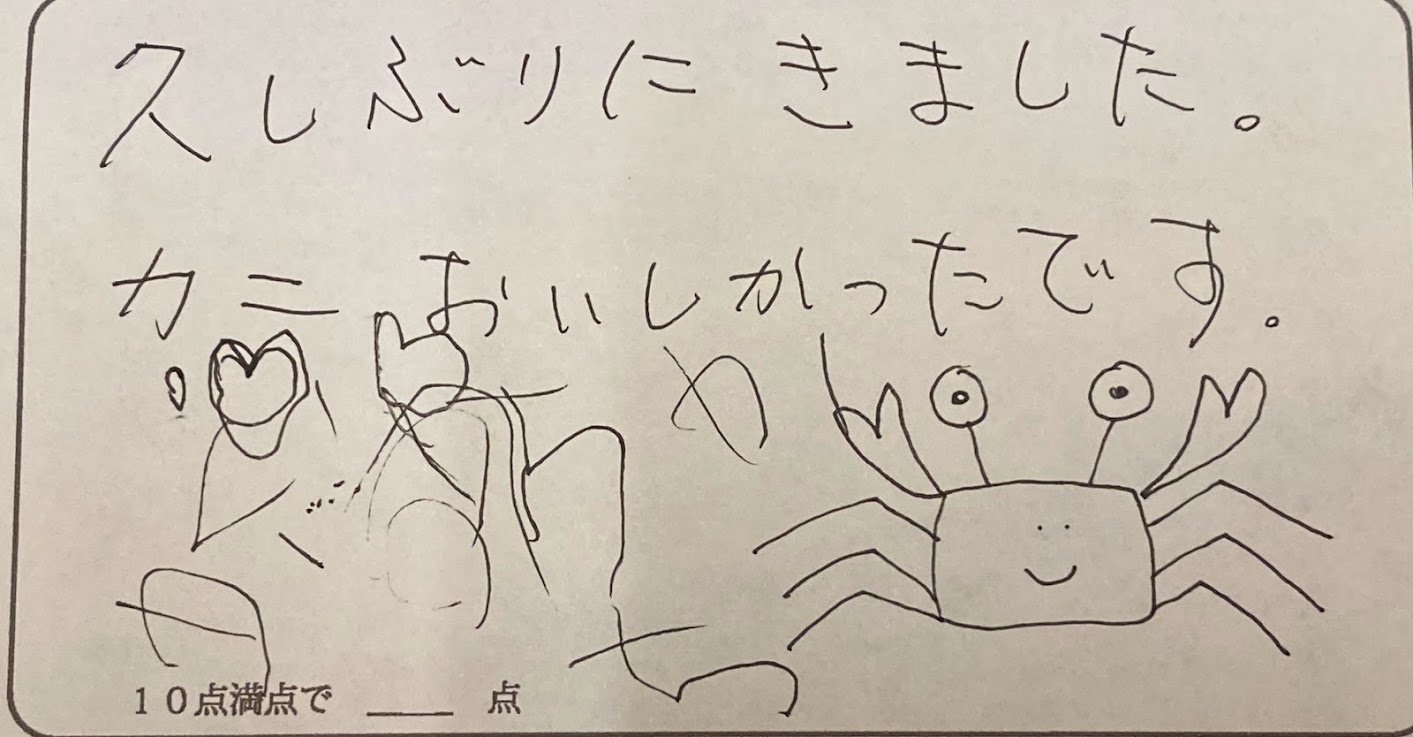 久しぶりにきました。
カニおいしかったです。
10点満点で ____ 点